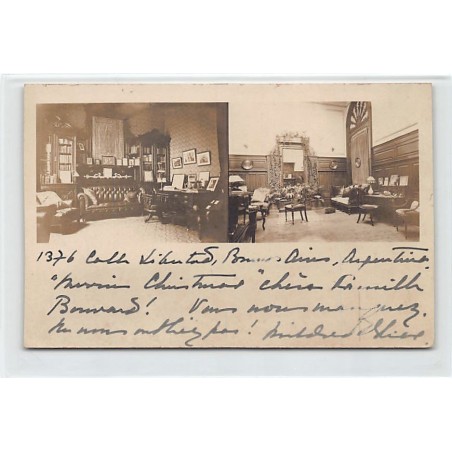 1376 Calle Libertad, Buenos Aires, Argentina.
" Christmas" chère famille
Bonnard! Vous nous manquez.
Ne nous oubliez pas! Mildred &